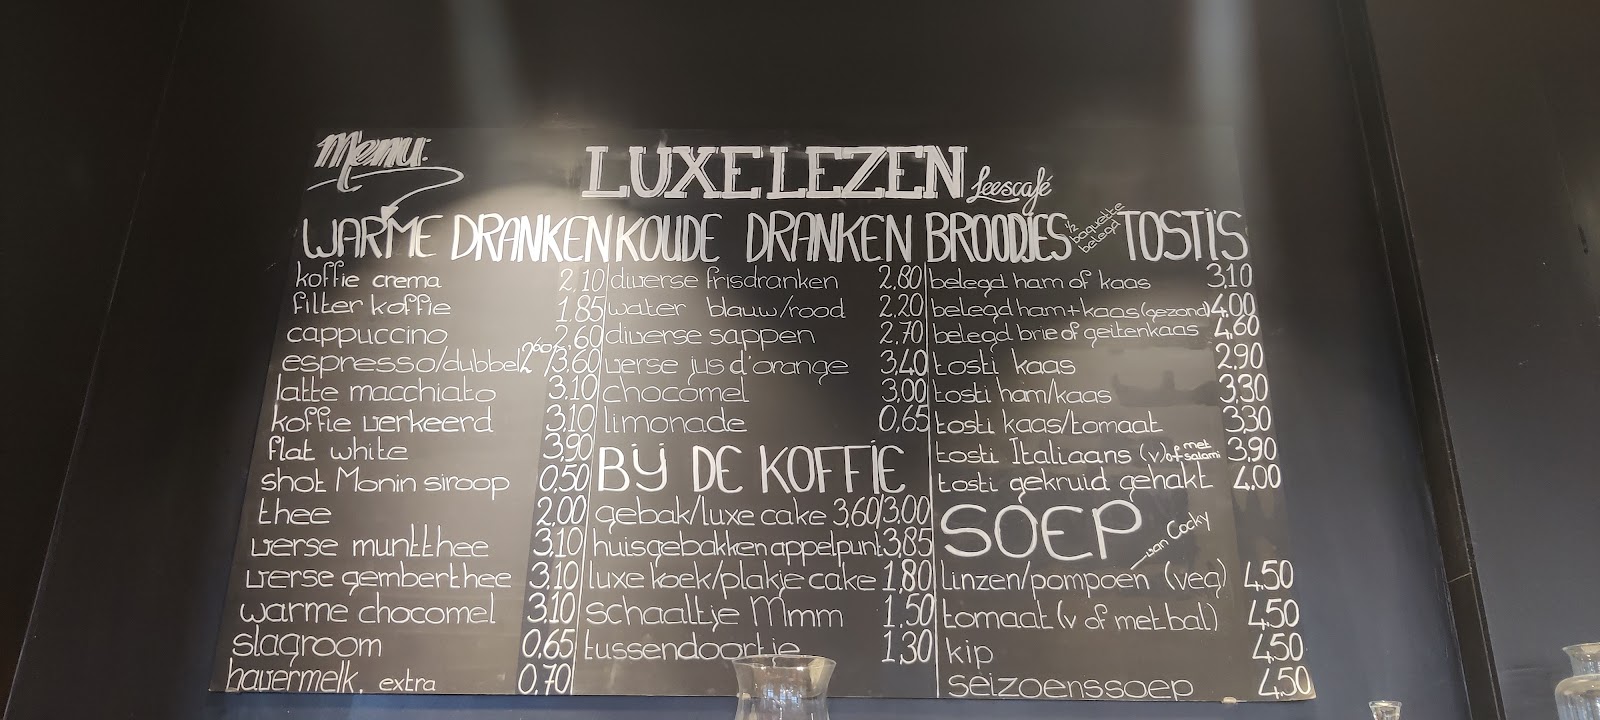 Menu:
LUXELEZEN Leescafé
WARME DRANKEN
koffie crema 2,10
filter koffie 1,85
cappuccino 2,60
espresso/dubbel 2,60/3,60
latte macchiato 3,10
koffie verkeerd 3,10
flat white 3,90
shot Monin siroop 0,50
thee 2,00
verse muntthee 3,10
verse gemberthee 3,10
warme chocomel 3,10
slagroom 0,65
havermelk, extra 0,70
KOUDE DRANKEN
diverse frisdranken 2,80
water blauw/rood 2,20
diverse sappen 2,70
verse jus d'orange 3,40
chocomel 3,00
limonade 0,65
BIJ DE KOFFIE
gebak/luxe cake 3,60/3,00
huisgebakken appelpunt 3,85
luxe koek/plakje cake 1,80
schaaltje Mmm 1,50
tussendoortje 1,30
BROODJES 1/2 baguette belegd TOSTI'S
belegd ham of kaas 3,10
belegd ham+kaas (gezond) 4,00
belegd brie of geitenkaas 4,60
tosti kaas 2,90
tosti ham/kaas 3,30
tosti kaas/tomaat 3,30
tosti Italiaans (v) of met salami 3,90
tosti gekruid gehakt 4,00
SOEP van Cocky
linzen/pompoen (veg) 4,50
tomaat (v of met bal) 4,50
kip 4,50
seizoenssoep 4,50